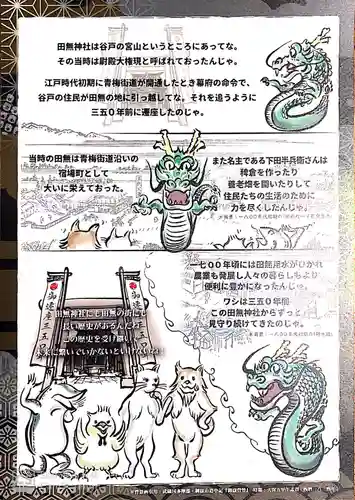 田無神社は谷戸の宮山というところにあってな。
その当時は尉殿大権現と呼ばれておったんじゃ。
江戸時代初期に青梅街道が開通したとき幕府の命令で、
谷戸の住民が田無の地に引っ越してな。それを追うように
三五〇年前に遷座したのじゃ。
当時の田無は青梅街道沿いの
宿場町として
大いに栄えておった。
また名主である下田半兵衛さんは
稗倉を作ったり
養老畑を開いたりして
住民たちの生活のために
力を尽くしたんじゃ。
一七〇〇年頃には田無用水がひかれ
農業も発展し人々の暮らしもより
便利に豊かになったんじゃ。
ワシは三五〇年間
この田無神社からずっと
見守り続けてきたのじゃ。
田無神社にも田無の町にも
長い歴史があるんだね
この歴史を受け継いで
未来に繋いでいかないといけないね!
御遷座三五